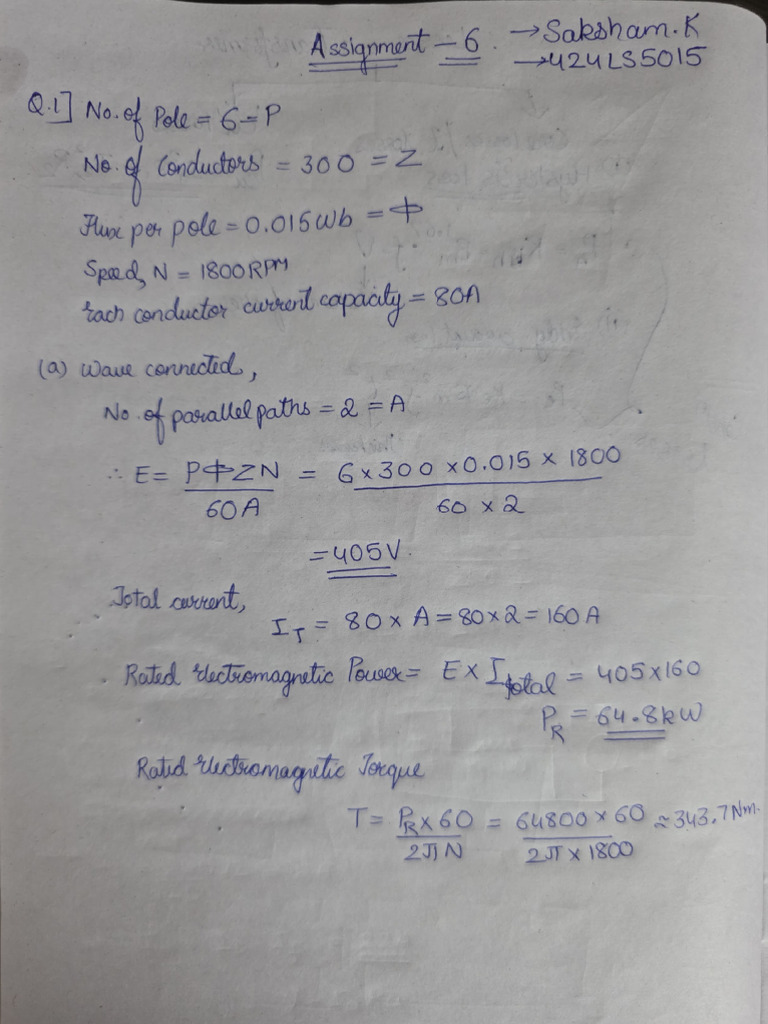 Assignment - 6 → Saksham.K
→ 424LS5015
Q.1] No. of Pole = 6 = P
No. of Conductors = 300 = Z
Flux per pole = 0.015Wb = Φ
Speed, N = 1800RPM
Each conductor current capacity = 80A
(a) Wave connected,
No. of parallel paths = 2 = A
∴ E = PΦZN / 60A = 6 × 300 × 0.015 × 1800 / 60 × 2
= 405V.
Total current,
I_T = 80 × A = 80 × 2 = 160 A
Rated Electromagnetic Power = E × I_total = 405 × 160
P_R = 64.8kW
Rated Electromagnetic Torque
T = P_R × 60 / 2πN = 64800 × 60 / 2π × 1800 ≈ 343.7 Nm.